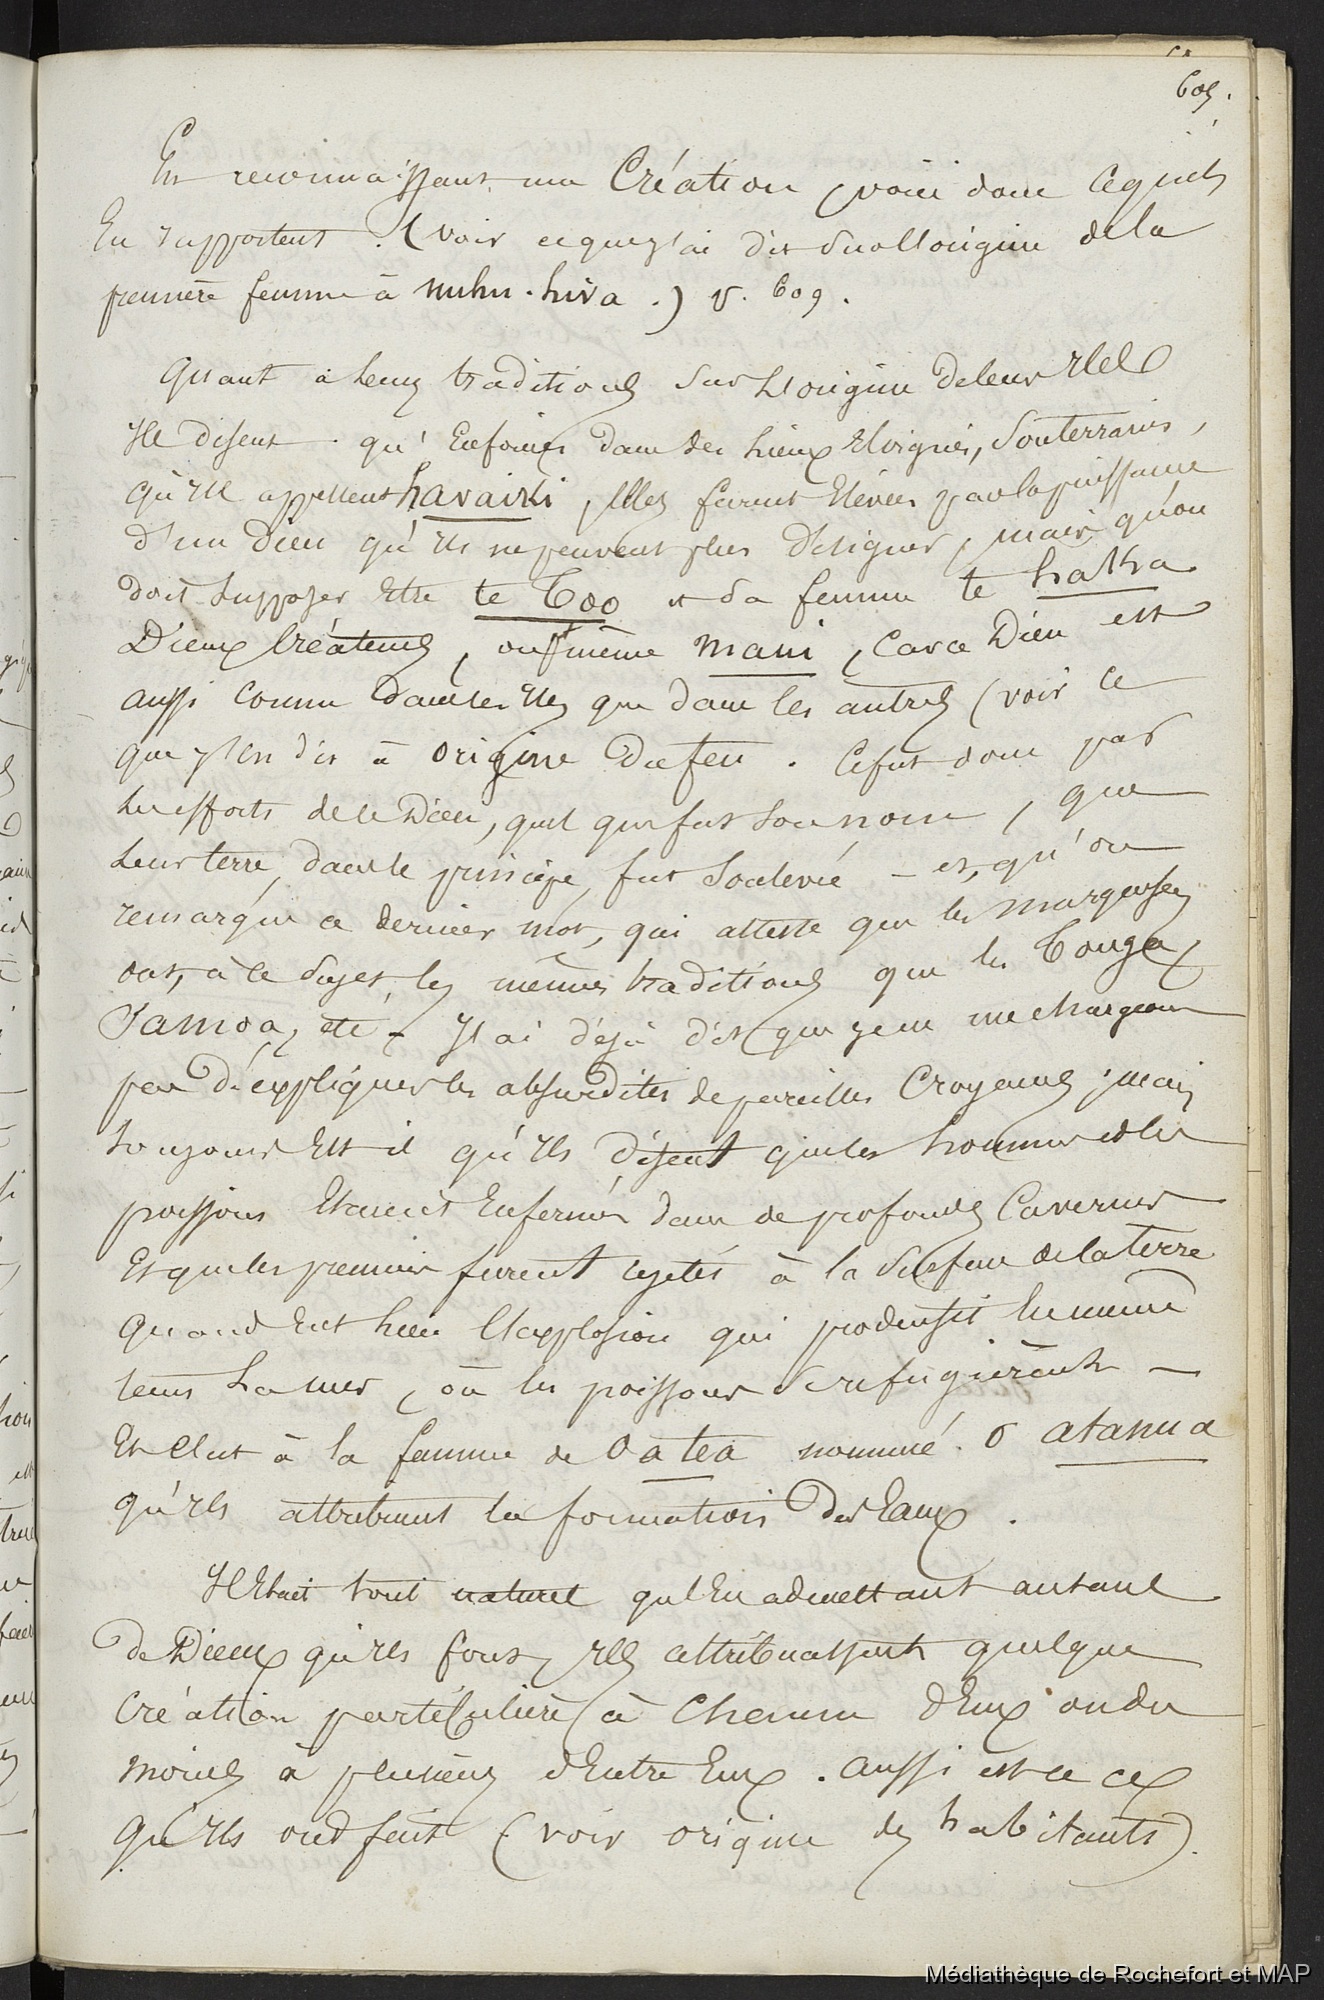 605.
En reconnaissant une Création, voici donc ce qu'ils
En rapportent. (voir ce que j'ai dit sur l'origine de la
première femme à nuhu-hiva.) v. 609.
Quant à leurs traditions sur l'origine de leurs Iles
Ils disent qu'Enfouies dans des lieux Eloignés, Souterrains,
qu'Ils appellent havaiki, Elles furent Elevées par la puissance
d'un Dieu qu'Ils ne peuvent plus désigner, mais qu'on
doit supposer Etre te Too et sa femme te haKa
Dieux Créateurs, ou même maui, Car ce Dieu est
aussi connu dans les Iles que dans les autres (voir ce
que j'En dis à origine du feu. Ce fut donc par
les efforts de ce Dieu, quel que fut son nom, que
leur terre, dans le principe, fut Soulevée – et, qu'on
remarque ce dernier mot, qui atteste que les marquises
ont, à ce sujet, les mêmes traditions que les Tonga,
Samoa, etc – J'ai déjà dit que je ne me chargeais
pas d'expliquer les absurdités de pareilles Croyances; mais
toujours Est il qu'Ils disent que les hommes et les
poissons Etaient Enfermés dans de profondes Cavernes
Et que les premiers furent rejetés à la surface de la terre
quand Eut lieu l'Explosion qui produisit en même
tems La mer, où les poissons se refugièrent –
Et c'Est à la femme de Oatea nommée O atanua
qu'Ils attribuent la formation des Eaux.
Il Etait tout naturel qu'En admettant autant
de Dieux qu'Ils font, Ils attribuassent quelque
Création particulière à Chacun d'Eux ou du
moins à plusieurs d'Entre Eux. aussi est-ce ce
qu'Ils ont fait (voir origine des habitants).
Médiathèque de Rochefort et MAP